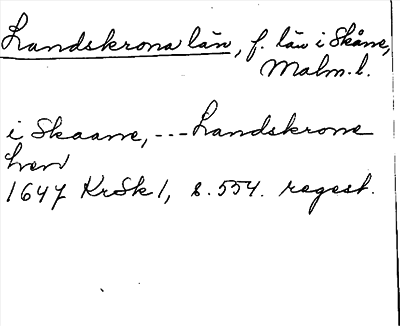 Landskrona län, f. län i Skåne,
Malm. l.
i Skaane, --- Landskrone
Lven
1647 KrSk 1, s. 554. regest.